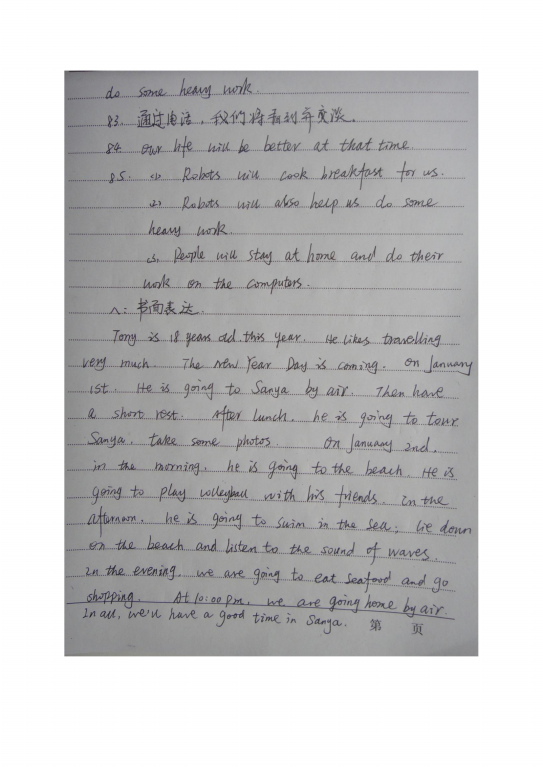 do some heavy work.
83. 通过电话，我们将看到并交谈。
84. Our life will be better at that time.
85. (1) Robots will cook breakfast for us.
(2) Robots will also help us do some
heavy work.
(3) People will stay at home and do their
work on the computers.
八：书面表达.
Tony is 18 years old this year. He likes travelling
very much. The New Year Day is coming. On January
1st. He is going to Sanya by air. Then have
a short rest. After lunch, he is going to tour
Sanya, take some photos. On January 2nd,
in the morning, he is going to the beach. He is
going to play volleyball with his friends. In the
afternoon, he is going to swim in the sea; lie down
on the beach and listen to the sound of waves.
In the evening, we are going to eat seafood and go
shopping. At 10:00 p.m, we are going home by air.
In all, we'll have a good time in Sanya.
第 页